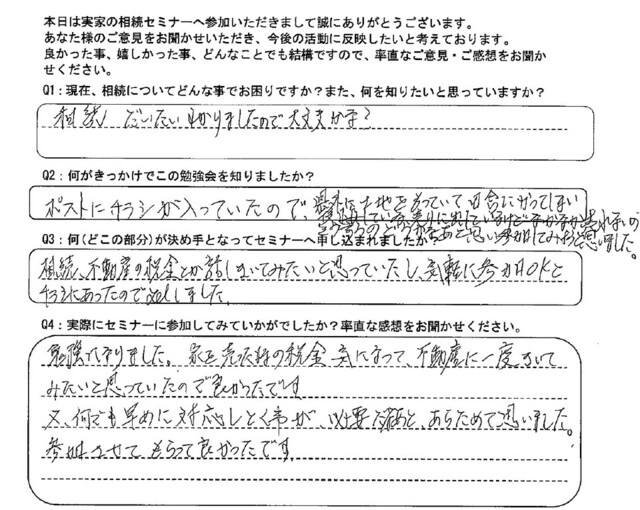 本日は実家の相続セミナーへ参加いただきまして誠にありがとうございます。
あなた様のご意見をお聞かせいただき、今後の活動に反映したいと考えております。
良かった事、嬉しかった事、どんなことでも結構ですので、率直なご意見・ご感想をお聞か
せください。
Q1：現在、相続についてどんな事でお困りですか？また、何を知りたいと思っていますか？
相続 だいたいわかりましたので大丈夫かな？
Q2：何がきっかけでこの勉強会を知りましたか？
ポストにチラシが入っていたので、
売りに出しているけどなかなか売れないの
と思い参加してみようと思いました。
Q3：何（どこの部分）が決め手となってセミナーへ申し込まれましたか
相続、不動産の税金とか話しきいてみたいと思っていたし、気軽に参加OKと
チラシにあったので しました。
Q4：実際にセミナーに参加してみていかがでしたか？率直な感想をお聞かせください。
勉強になりました。家を売った時の税金 気になって、不動産に一度きいて
みたいと思っていたので良かったです
又、何でも早めに対応しとく事が、必要だなあと、あらためて思いました。
参加させてもらって良かったです